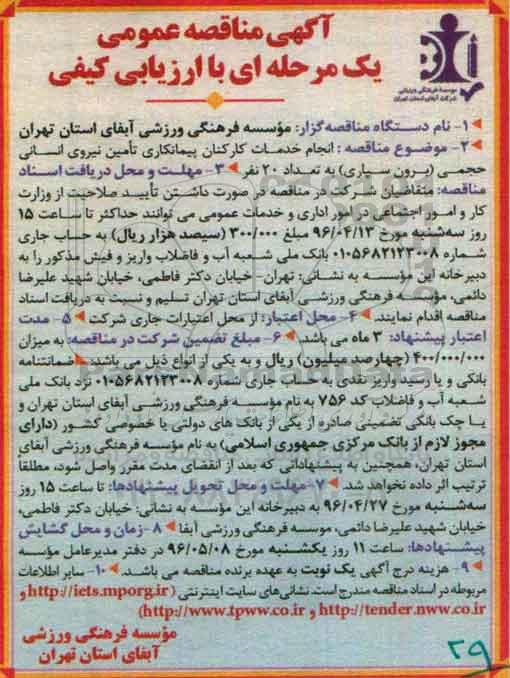 آگهی مناقصه عمومی
یک مرحله ای با ارزیابی کیفی
موسسه فرهنگی ورزشی
شرکت آبفای استان تهران
۱- نام دستگاه مناقصه‌گزار: مؤسسه فرهنگی ورزشی آبفای استان تهران
۲- موضوع مناقصه : انجام خدمات کارکنان پیمانکاری تأمین نیروی انسانی
حجمی (برون سپاری) به تعداد ۲۰ نفر ۳- مهلت و محل دریافت اسناد
مناقصه: متقاضیان شرکت در مناقصه در صورت داشتن تأیید صلاحیت از وزارت
کار و امور اجتماعی در امور اداری و خدمات عمومی می توانند حداکثر تا ساعت ۱۵
روز سه‌شنبه مورخ ۹۶/۰۴/۱۳ مبلغ ۳۰۰/۰۰۰ (سیصد هزار ریال) به حساب جاری
شماره ۰۱۰۵۶۸۲۱۲۳۰۰۸ بانک ملی شعبه آب و فاضلاب واریز و فیش مذکور را به
دبیرخانه این مؤسسه به نشانی: تهران- خیابان دکتر فاطمی، خیابان شهید علیرضا
دائمی، مؤسسه فرهنگی ورزشی آبفای استان تهران تسلیم و نسبت به دریافت اسناد
مناقصه اقدام نمایند. ۴- محل اعتبار: از محل اعتبارات جاری شرکت ۵- مدت
اعتبار پیشنهاد: ۳ ماه می باشد. ۶- مبلغ تضمین شرکت در مناقصه: به میزان
۴۰۰/۰۰۰/۰۰۰ (چهارصد میلیون) ریال و به یکی از انواع ذیل می باشد: ضمانتنامه
بانکی و یا رسید واریز نقدی به حساب جاری شماره ۰۱۰۵۶۸۲۱۲۳۰۰۸ نزد بانک ملی
شعبه آب و فاضلاب کد ۷۵۶ به نام مؤسسه فرهنگی ورزشی آبفای استان تهران و
یا چک بانکی تضمینی صادره از یکی از بانک های دولتی یا خصوصی کشور (دارای
مجوز لازم از بانک مرکزی جمهوری اسلامی) به نام مؤسسه فرهنگی ورزشی آبفای
استان تهران، همچنین به پیشنهاداتی که بعد از انقضای مدت مقرر واصل شود، مطلقا
ترتیب اثر داده نخواهد شد. ۷- مهلت و محل تحویل پیشنهادها: تا ساعت ۱۵ روز
سه‌شنبه مورخ ۹۶/۰۴/۲۷ به دبیرخانه این مؤسسه به نشانی: خیابان دکتر فاطمی،
خیابان شهید علیرضا دائمی، موسسه فرهنگی ورزشی آبفا ۸- زمان و محل گشایش
پیشنهادها: ساعت ۱۱ روز یکشنبه مورخ ۹۶/۰۵/۰۸ در دفتر مدیرعامل مؤسسه
۹- هزینه درج آگهی یک نوبت به عهده برنده مناقصه می باشد. ۱۰- سایر اطلاعات
مربوطه در اسناد مناقصه مندرج است. نشانی‌های سایت اینترنتی (http://iets.mporg.ir و
http://tender.nww.co.ir و http://www.tpww.co.ir)
مؤسسه فرهنگی ورزشی
آبفای استان تهران
۲۹